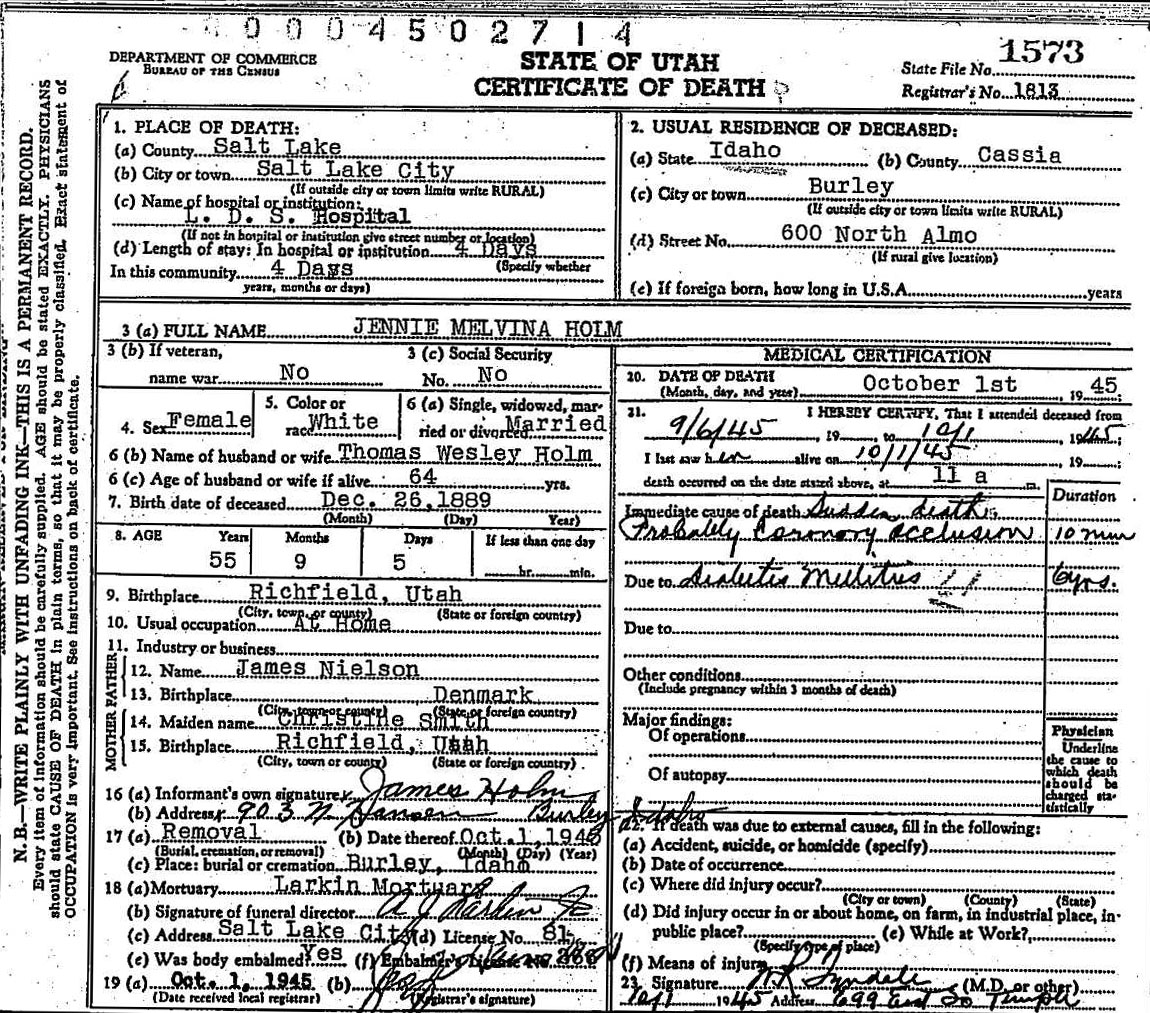 0004502714
DEPARTMENT OF COMMERCE
BUREAU OF THE CENSUS
STATE OF UTAH
CERTIFICATE OF DEATH
State File No. 1573
Registrar's No. 1813
N. B.—WRITE PLAINLY WITH UNFADING INK—THIS IS A PERMANENT RECORD.
Every item of information should be carefully supplied. AGE should be stated EXACTLY. PHYSICIANS
should state CAUSE OF DEATH in plain terms, so that it may be properly classified. Exact statement of
OCCUPATION is very important. See instructions on back of certificate.
1. PLACE OF DEATH:
(a) County Salt Lake
(b) City or town Salt Lake City
(If outside city or town limits write RURAL)
(c) Name of hospital or institution:
L. D. S. Hospital
(If not in hospital or institution give street number or location)
(d) Length of stay: In hospital or institution 4 Days
(Specify whether
In this community 4 Days
years, months or days)
2. USUAL RESIDENCE OF DECEASED:
(a) State Idaho (b) County Cassia
(c) City or town Burley
(If outside city or town limits write RURAL)
(d) Street No. 600 North Almo
(If rural give location)
(e) If foreign born, how long in U.S.A. years
3 (a) FULL NAME JENNIE MELVINA HOLM
3 (b) If veteran,
name war No
3 (c) Social Security
No. No
4. Sex Female
5. Color or
race White
6 (a) Single, widowed, mar-
ried or divorced Married
6 (b) Name of husband or wife Thomas Wesley Holm
6 (c) Age of husband or wife if alive 64 yrs.
7. Birth date of deceased Dec. 26, 1889
(Month) (Day) Year)
8. AGE Years Months Days If less than one day
55 9 5 hr. min.
9. Birthplace Richfield, Utah
(City, town, or county) (State or foreign country)
10. Usual occupation At Home
11. Industry or business
FATHER
12. Name James Nielson
13. Birthplace Denmark
(City, town or county) (State or foreign country)
MOTHER
14. Maiden name Christine Smith
15. Birthplace Richfield, Utah
(City, town or county) (State or foreign country)
16 (a) Informant's own signature x James Holm
(b) Address x 903 N. Hansen Burley Idaho
17 (a) Removal (b) Date thereof Oct. 1, 1945
(Burial, cremation, or removal) (Month) (Day) (Year)
(c) Place: burial or cremation Burley, Idaho
18 (a) Mortuary Larkin Mortuary
(b) Signature of funeral director A J Larkin Jr
(c) Address Salt Lake City (d) License No. 81
(e) Was body embalmed? Yes (f) Embalmer's License No.
19 (a) Oct. 1, 1945 (b)
(Date received local registrar) (Registrar's signature)
MEDICAL CERTIFICATION
20. DATE OF DEATH October 1st, 1945
(Month, day, and year)
21. I HEREBY CERTIFY, That I attended deceased from
9/6/45, 19 to 10/1, 1945;
I last saw her alive on 10/1/45, 19 ;
death occurred on the date stated above, at 11 a m.
Duration
Immediate cause of death Sudden death
Probably Coronary occlusion 10 min
Due to Diabetis Mellitis 6 yrs.
Due to
Other conditions
(Include pregnancy within 3 months of death)
Major findings:
Of operations
Of autopsy
Physician
Underline
the cause to
which death
should be
charged sta-
tistically
22. If death was due to external causes, fill in the following:
(a) Accident, suicide, or homicide (specify)
(b) Date of occurrence
(c) Where did injury occur?
(City or town) (County) (State)
(d) Did injury occur in or about home, on farm, in industrial place, in
public place? (e) While at Work?
(Specify type of place)
(f) Means of injury
23. Signature (M.D. or other)
10/1 1945 Address 699 East So Temple